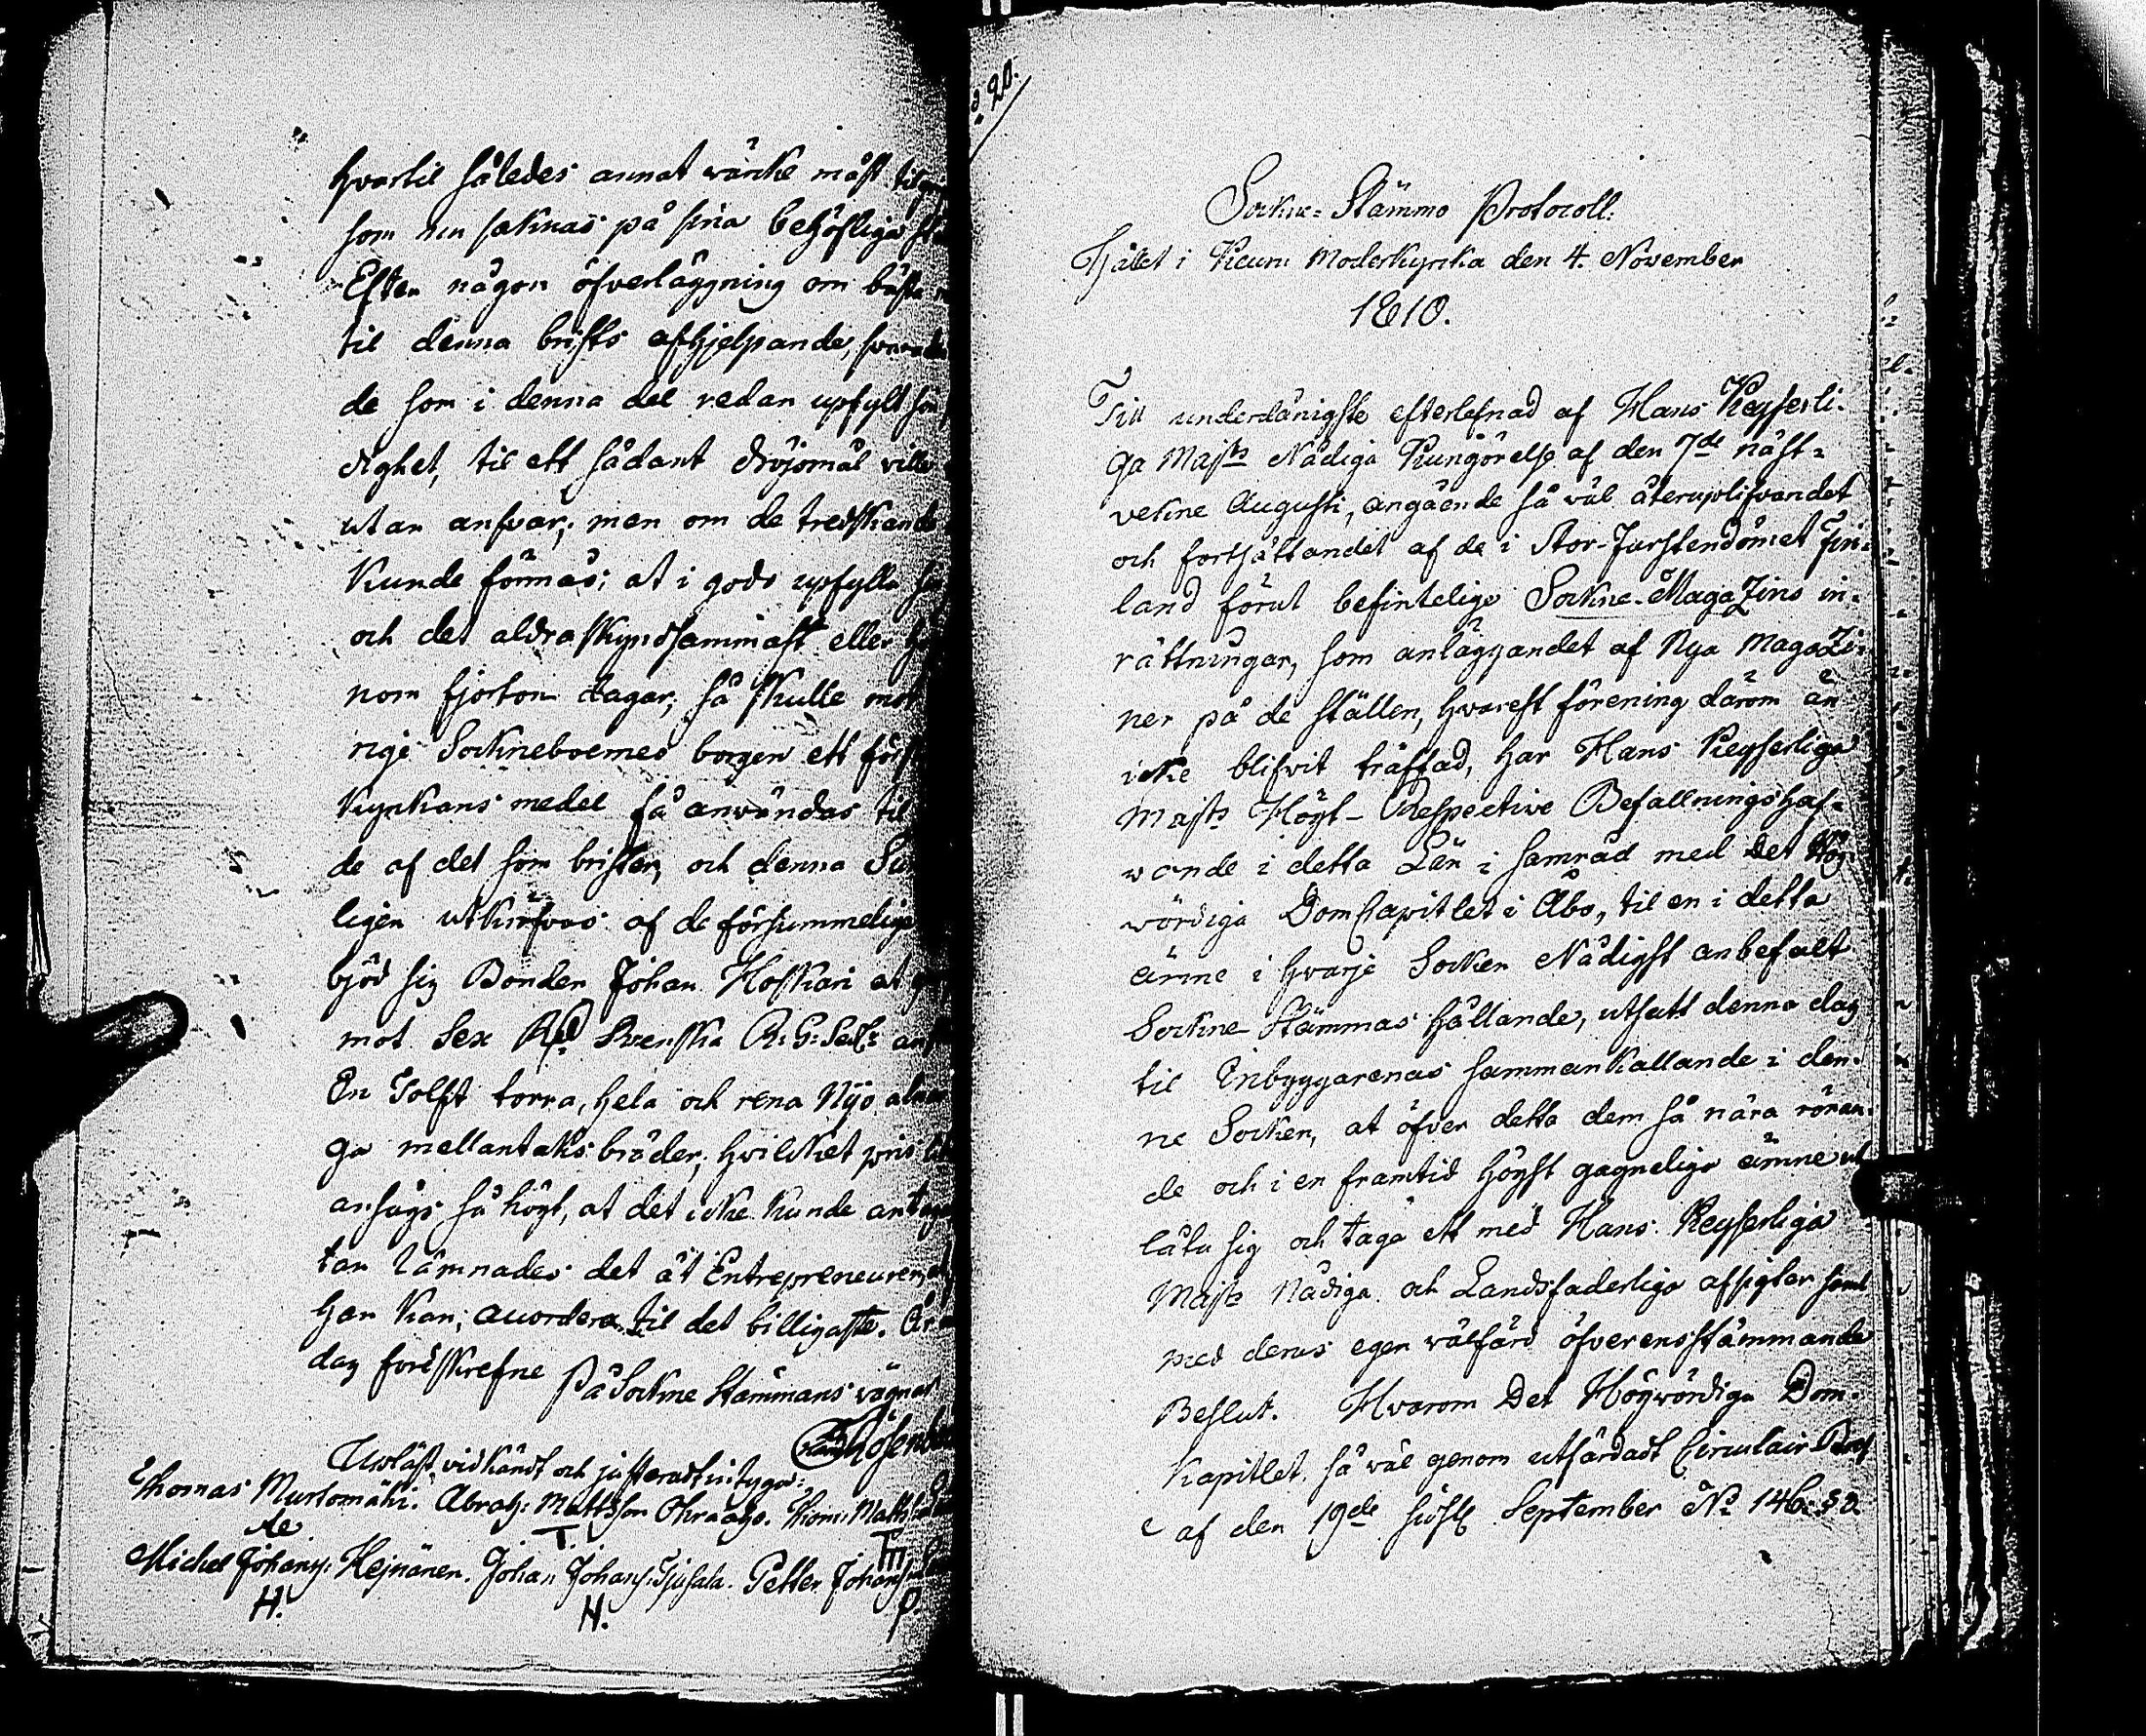 hvartil således annat virke måst
som nu saknas på sina behöfliga
Efter någon öfverläggning om bästa
til denna brists afhjelpande, svarade
de som i denna del redan upfylt sin
dighet, til ett sådant dröjsmål ville
utan ansvar; men om de tredskande
kunde förmås, at i godo upfylla
och det aldraskyndsammast eller
nom fjorton dagar, så skulle mot
rige Sockneboernes borgen ett
Kyrkans medel få användas til
de af det som brister, och denna
ligen utkräfvas af de försummelige
bjöd sig Bonden Johan Hoskari at
mot Sex Rd Svenska R: G: Sedl:
En Tolft torra, hela och rena Nijo alnar
ga mellantaks bräder; hvilcket pris
ansågs så högt, at det icke kunde antagas
tan lämnades det åt Entrepreneuren
han kan, accordera til det billigaste. År
dag föreskrefne På Sockne Stämmans vägnar
Upläst, vidkändt och justeradt, intyga:
Thomas Murtomäki. Abrah: Mattsson Thom: Matts
Michel Johans: Hejnänen. Johan Johans: Petter Johans
H. H. P.
20.
Sockne-Stämmo Protocoll:
Hållet i Keuru Moderkyrka den 4. November
1810.
Till underdånigste efterlefnad af Hans Keyserli-
ga Majts Nådiga Kungörelse af den 7de näst-
vekne Augusti, angående så väl återuplifvandet
och fortsättandet af de i Stor-Furstendömet Fin-
land förut befintelige Sockne-Magazins in-
rättningar, som anläggandet af Nya Magazi-
ner på de ställen, hvarest förening därom än
icke blifvit träffad, har Hans Keyserliga
Majts Högt-Respective Befallningshaf-
wande i detta Län i samråd med Det Hög-
wördiga DomCapitlet i Åbo, til en i detta
ämne i hvarje Socken Nådigst anbefalt
Sockne-Stämmas hållande, utsatt denna dag
til Inbyggarenas sammankallande i den-
ne Socken, at öfver detta dem så nära röran-
de och i en framtid högst gagnelige ämne ut
låta sig och taga ett med Hans Keyserliga
Majts Nådiga och Landsfaderliga afsigter samt
med deras egen välfärd öfverensstämmande
Beslut. Hvarom Det Högwördiga Dom-
Kapitlet så väl genom utfärdadt Circulair Bref
af den 19de sidstl September No 146: § 2.